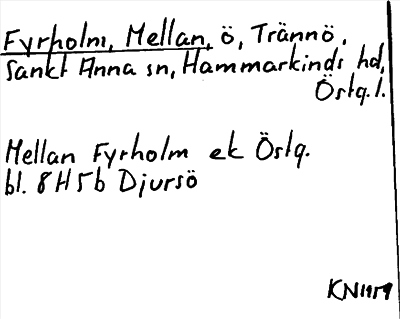 Fyrholm, Mellan, ö, Trännö,
Sankt Anna sn, Hammarkinds hd,
Östg.l.
Mellan Fyrholm ek Östg.
bl. 8H5b Djursö
KN1959